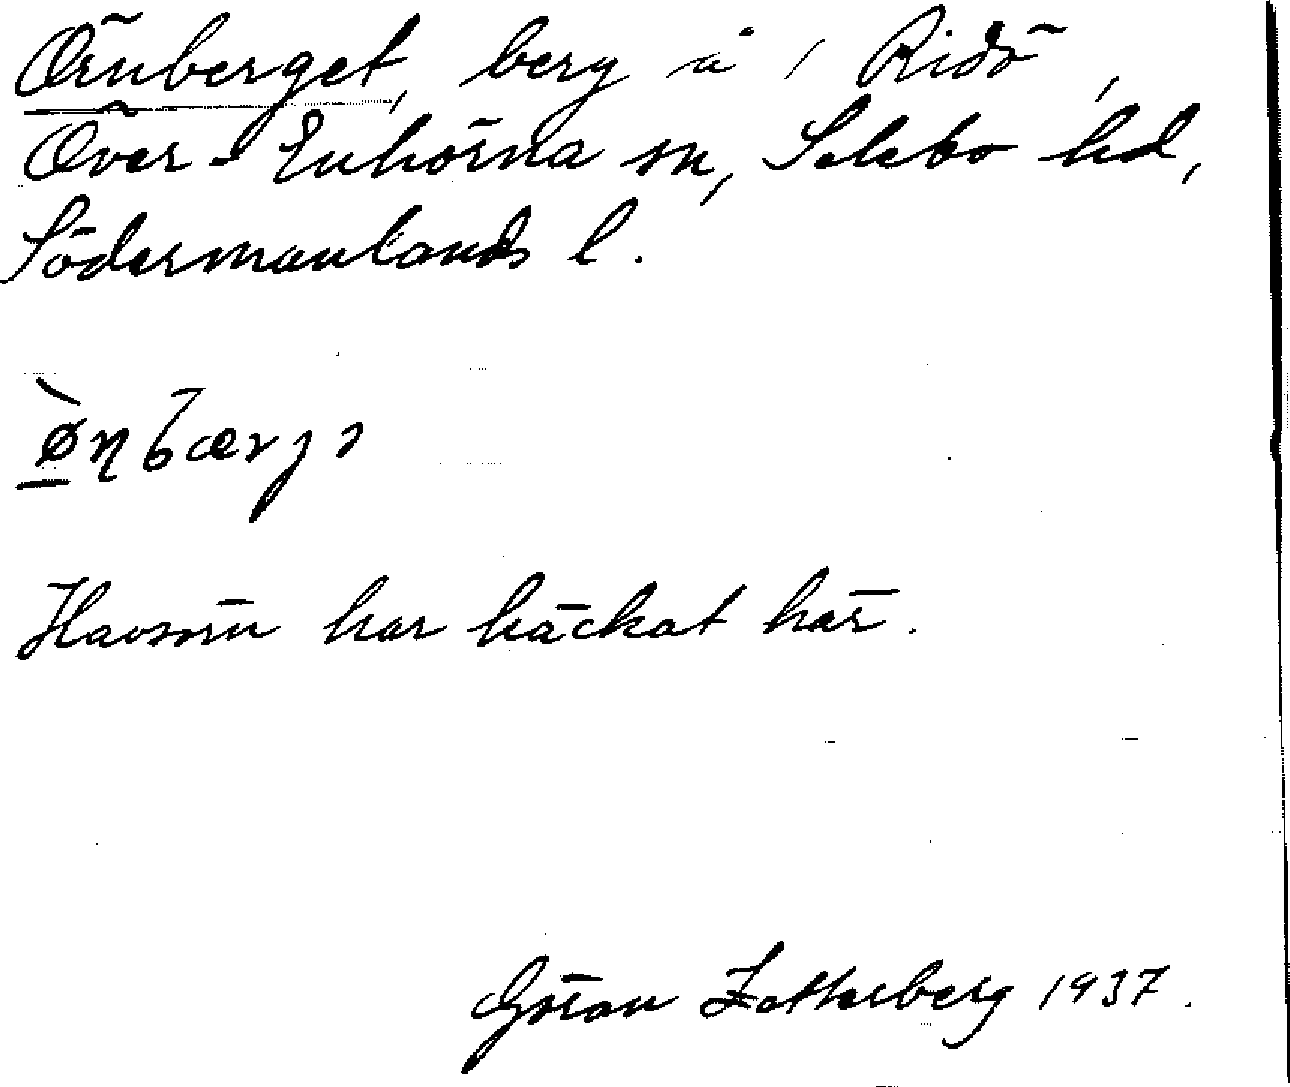 Örnberget, berg å / Ridö,
Över-Enhörna sn, Selebo hd,
Södermanlands l.
ø̀ɳbærjə
Havsörn har häckat här.
Göran Zetterberg 1937.